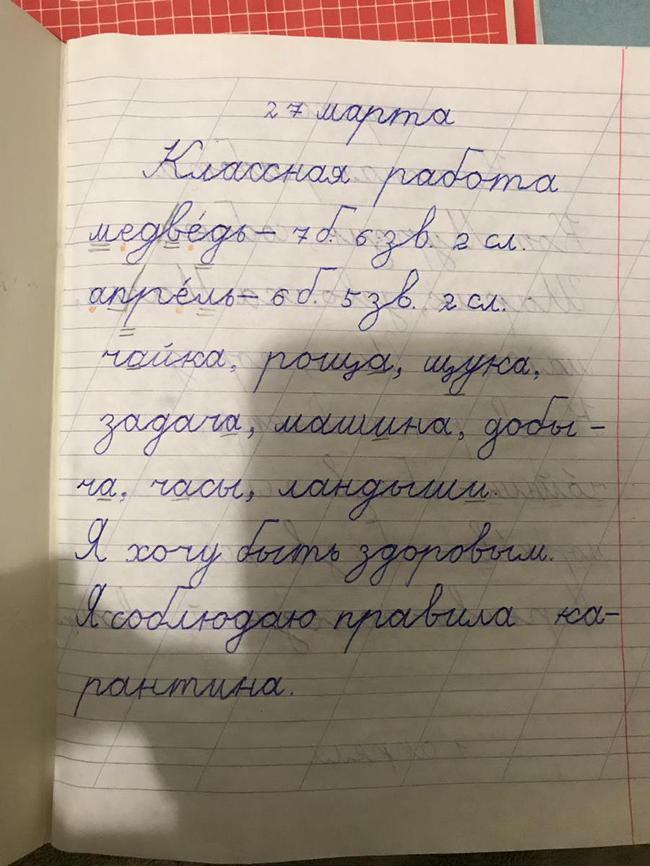 27 марта
Классная работа
медве́дь – 7 б. 6 зв. 2 сл.
апре́ль – 6 б. 5 зв. 2 сл.
чайка, роща, щука,
задача, машина, добы-
ча, часы, ландыши.
Я хочу быть здоровым.
Я соблюдаю правила ка-
рантина.